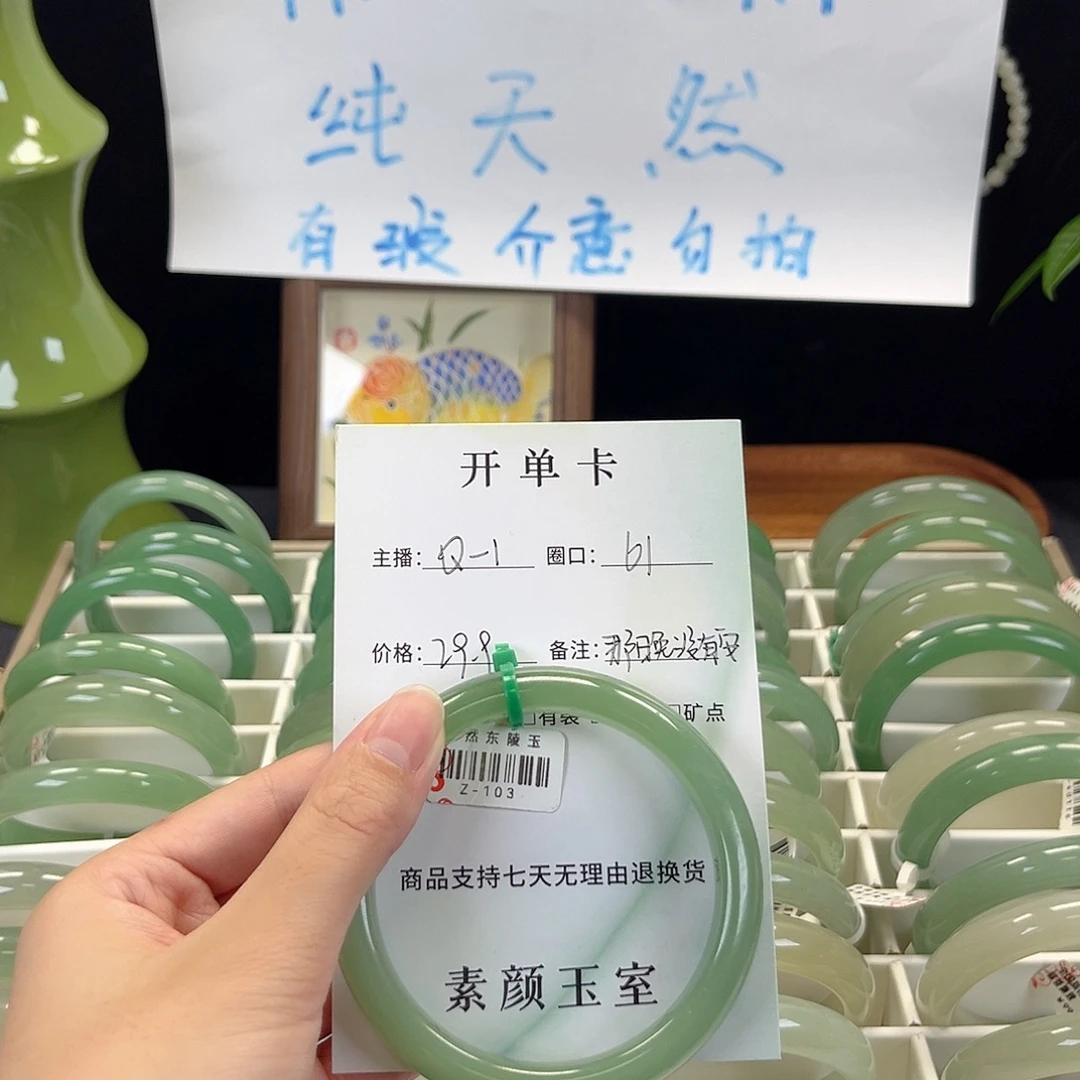 纯天然
有玻介意勿拍
开单卡
主播: Q-1 圈口: 61
价格: 29.9 备注:
有裂 矿点
然东陵玉
Z-103
商品支持七天无理由退换货
素颜玉室